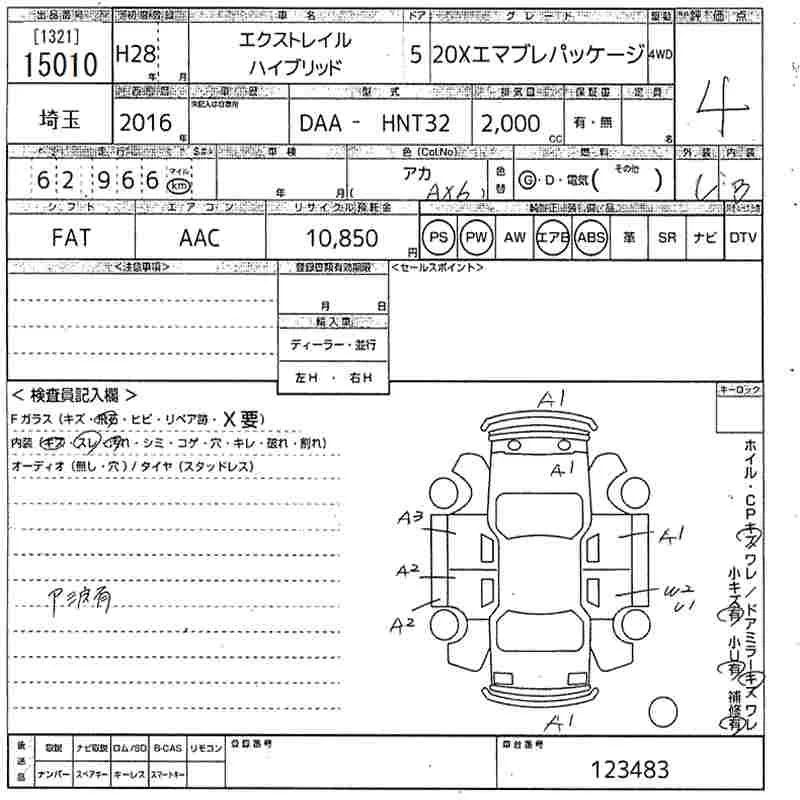 出品番号 初度登録 車名 ドア グレード 駆動 評価点
[1321]
15010 H28 年 月 エクストレイル ハイブリッド 5 20Xエマブレパッケージ 4WD 4
車歴 型式 排気量 保証書 定員
埼玉 2016 年 DAA - HNT32 2,000 CC 有・無 名
走行 車検 色(Col.No) 燃料 外装 内装
62966 マイル km 年 月 アカ ( AX6 ) 色替 G・D・電気( その他 ) B
シフト エアコン リサイクル預託金
FAT AAC 10,850 円 PS PW AW エアB ABS 革 SR ナビ DTV
<注意事項> 登録書類有効期限 <セールスポイント>
月 日
輸入車
ディーラー・並行
左H ・ 右H
< 検査員記入欄 > キーロック
Fガラス (キズ・飛石・ヒビ・リペア苗・X要)
内装 (キズ・スレ・汚れ・シミ・コゲ・穴・キレ・破れ・割れ)
オーディオ (無し・穴) / タイヤ (スタッドレス)
A1
A1
A3
A1
A2
W2
U1
A2
A1
ホイル・CPキズワレ/ドアミラーキズワレ
小キズ有 小U有 補修有
後送品 取説 ナビ取説 ロム/SD B-CAS リモコン 登録番号 車台番号
ナンバー スペアキー キーレス スマートキー 123483